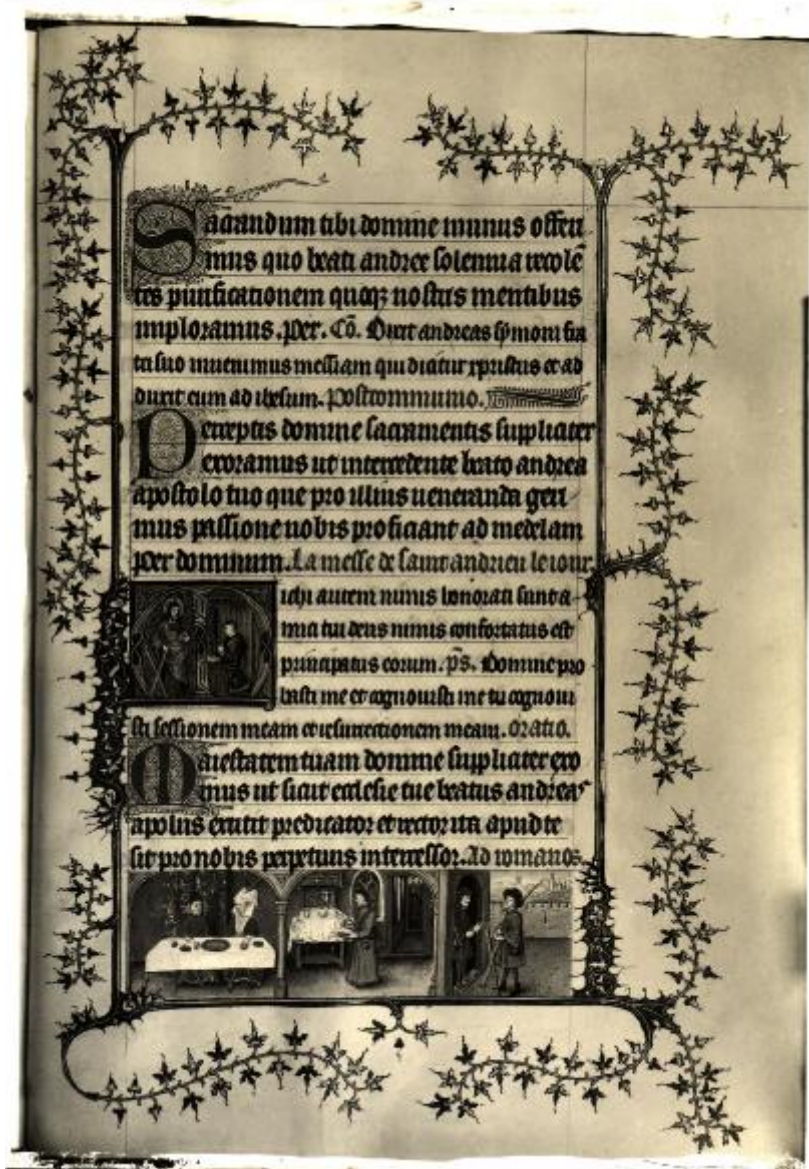 Sacrandum tibi domine munus offeri
mus quo beati andree solennia recolē
tes purificationem quoqꝫ nostris mentibus
imploramus. Per. Cō. Dixit andreas symoni fra
tri suo inuenimus messiam qui dicitur xpristus et ad
duxit eum ad ihesum. Postcommunio.
Perceptis domine sacramentis suppliciter
exoramus ut intercedente beato andrea
apostolo tuo que pro illius ueneranda geri
mus passione nobis proficiant ad medelam
per dominum. La messe de saint andrieu le iour.
ichi autem nimis honorati sunt a
mici tui deus nimis confortatus est
principatus eorum. p̄s. Domine pro
basti me et cognouisti me tu cognoui
sti sessionem meam et resurrectionem meam. oratio.
Maiestatem tuam domine suppliciter exo
mus ut sicut ecclesie tue beatus andreas
apolus extitit predicator et rector ita apud te
sit pro nobis perpetuus intercessor. Ad romanos.